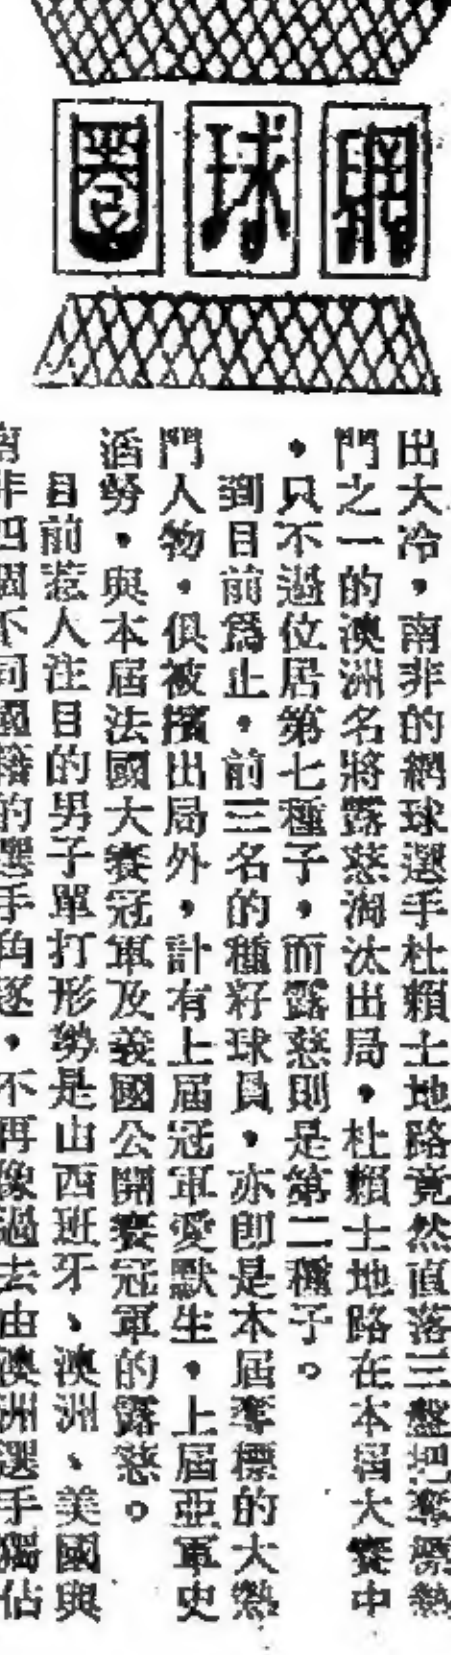 網球圈
出大冷，南非的網球選手杜賴士地路竟然直落三盤把奪標熱
門之一的澳洲名將露慈淘汰出局，杜賴士地路在本屆大賽中
，只不過位居第七種子，而露慈則是第二種子。
到目前爲止，前三名的種籽球員，亦即是本屆奪標的大熱
門人物，俱被擯出局外，計有上屆冠軍愛默生，上屆亞軍史
滔勞，與本屆法國大賽冠軍及義國公開賽冠軍的露慈。
目前惹人注目的男子單打形勢是由西班牙、澳洲、美國與
南非四個不同國籍的選手角逐，不再像過去由澳洲選手獨佔